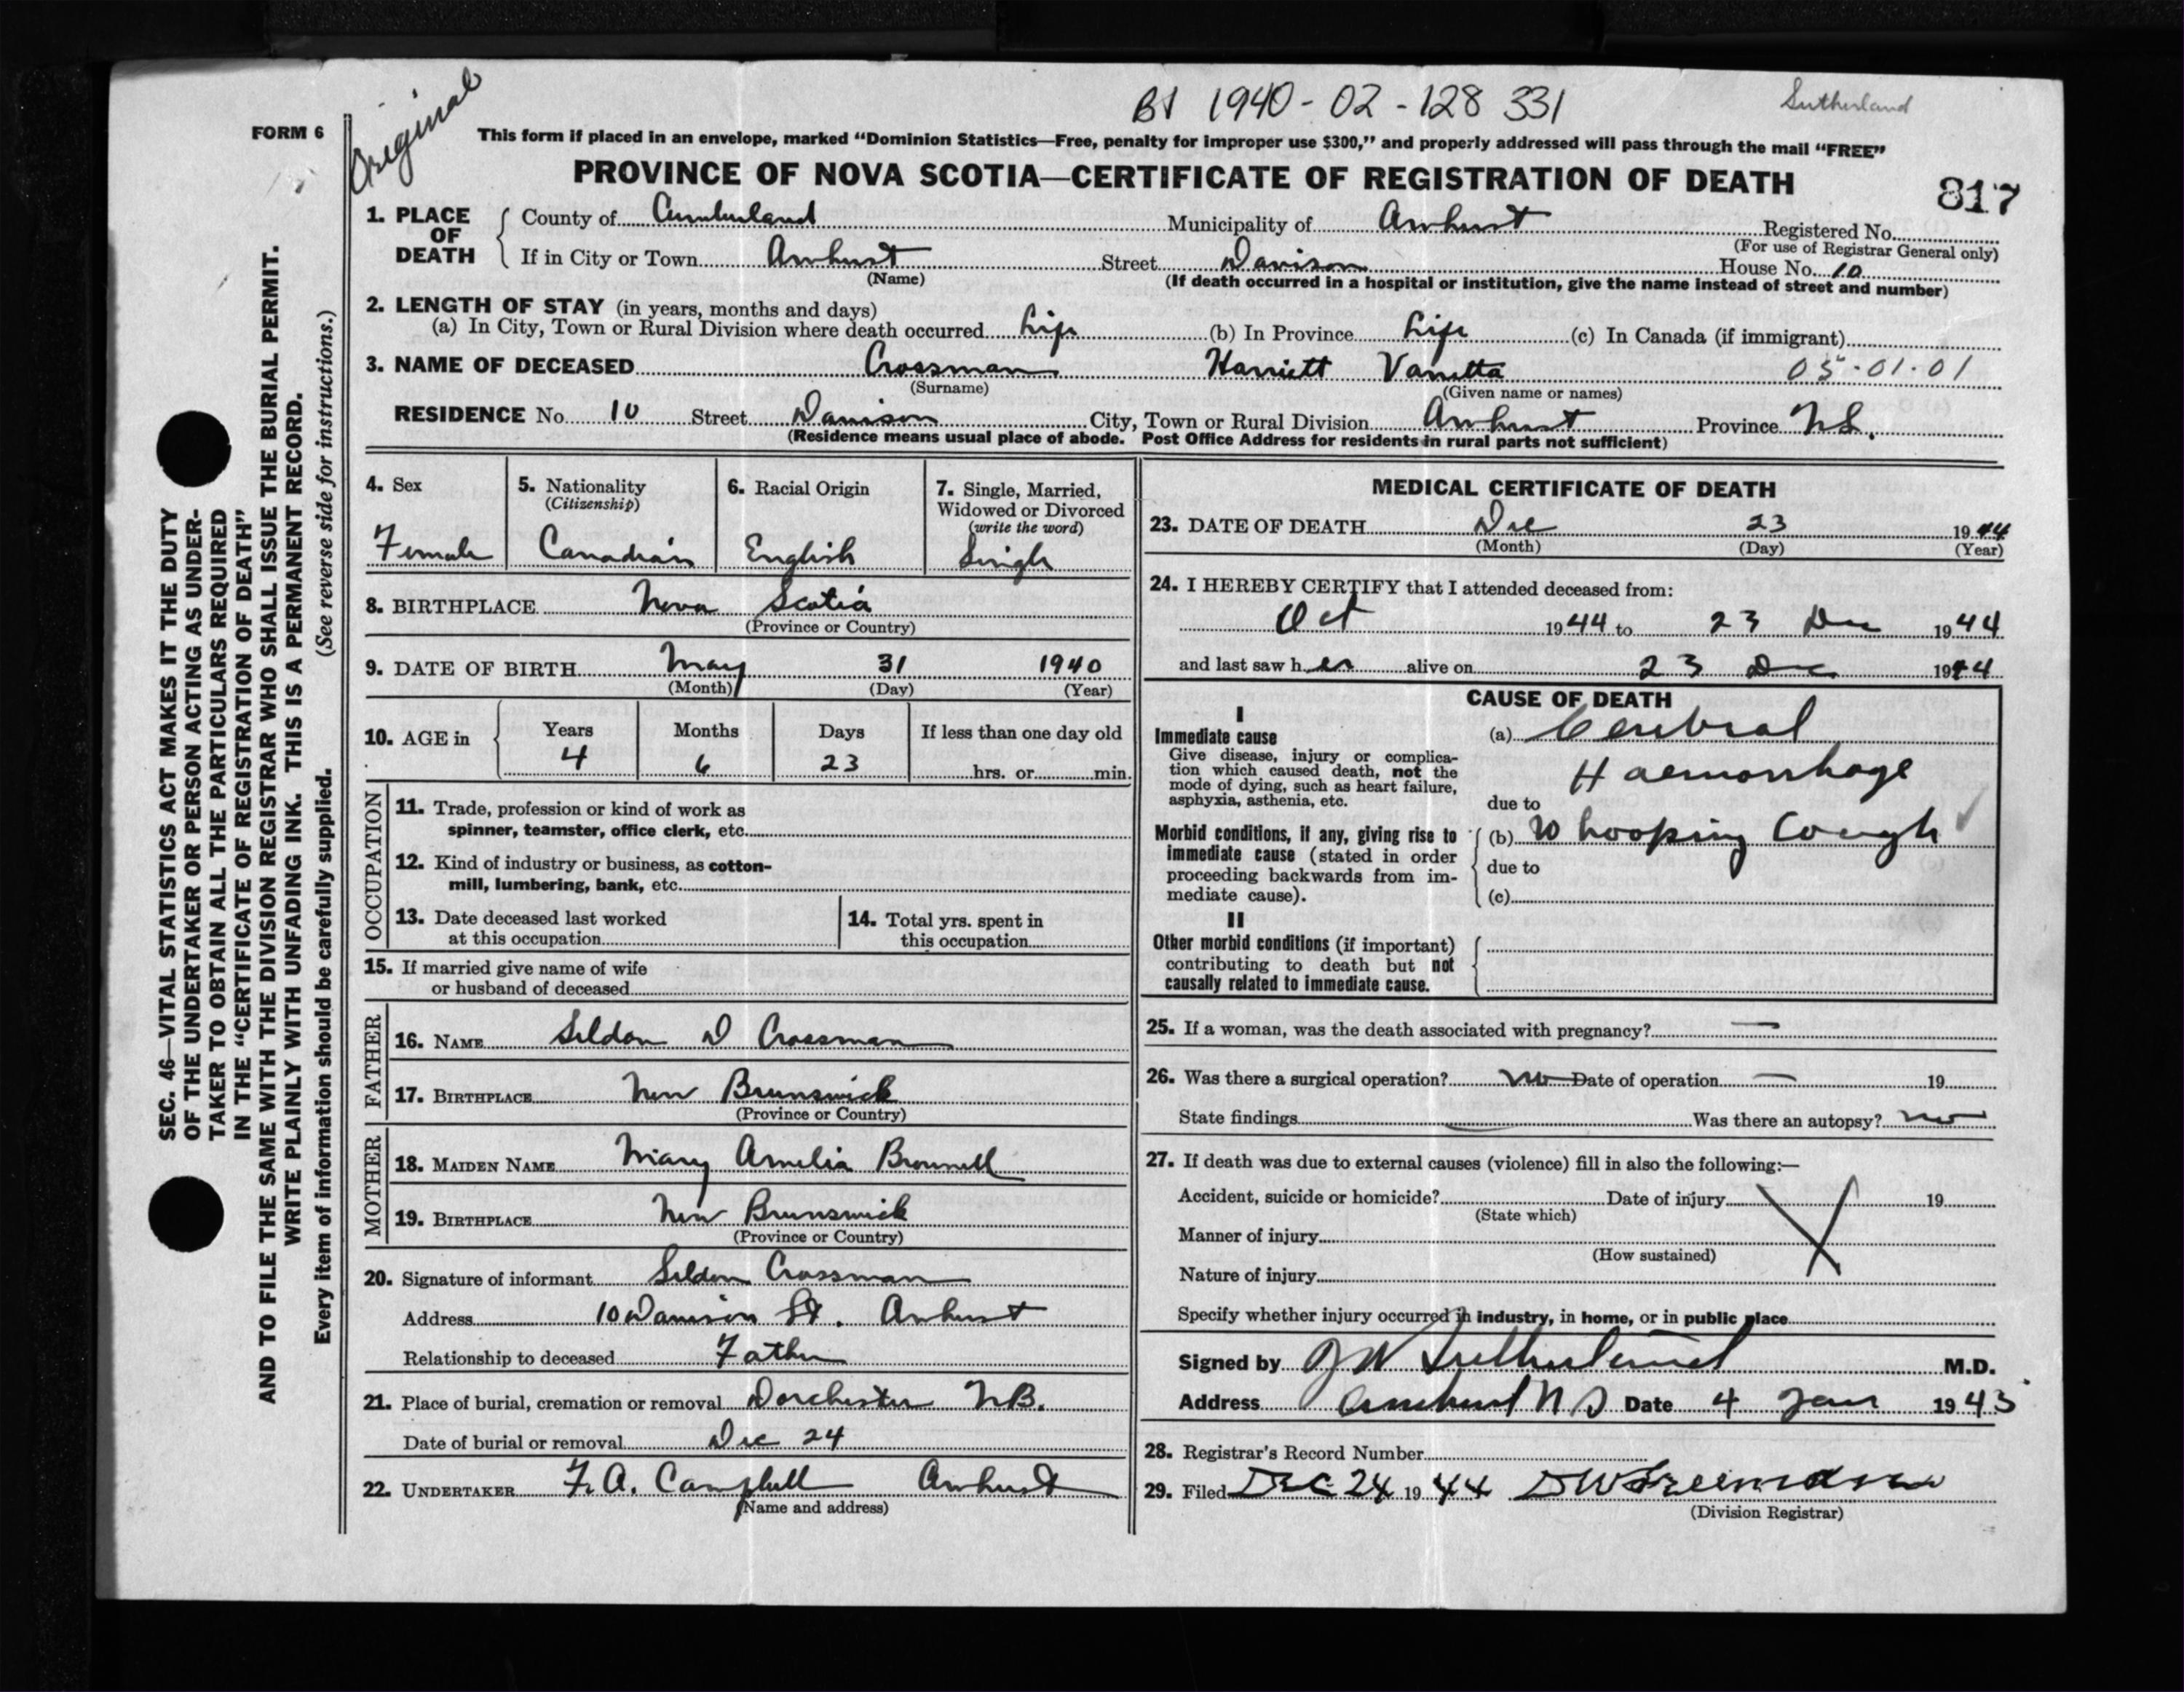 BS 1940-02-128 331
Sutherland
Original
FORM 6
This form if placed in an envelope, marked “Dominion Statistics—Free, penalty for improper use $300,” and properly addressed will pass through the mail “FREE”
PROVINCE OF NOVA SCOTIA—CERTIFICATE OF REGISTRATION OF DEATH
817
1. PLACE OF DEATH County of Cumberland Municipality of Amherst Registered No.
(For use of Registrar General only)
If in City or Town Amherst Street Davison House No. 10
(Name) (If death occurred in a hospital or institution, give the name instead of street and number)
2. LENGTH OF STAY (in years, months and days)
(a) In City, Town or Rural Division where death occurred Life (b) In Province Life (c) In Canada (if immigrant)
3. NAME OF DECEASED Crossman Harriett Vanetta 05-01-01
(Surname) (Given name or names)
RESIDENCE No. 10 Street Davison City, Town or Rural Division Amherst Province N.S.
(Residence means usual place of abode. Post Office Address for residents in rural parts not sufficient)
4. Sex
Female
5. Nationality
(Citizenship)
Canadian
6. Racial Origin
English
7. Single, Married,
Widowed or Divorced
(write the word)
Single
8. BIRTHPLACE Nova Scotia
(Province or Country)
9. DATE OF BIRTH May 31 1940
(Month) (Day) (Year)
10. AGE in Years Months Days If less than one day old
4 6 23 hrs. or min.
OCCUPATION
11. Trade, profession or kind of work as
spinner, teamster, office clerk, etc.
12. Kind of industry or business, as cotton-
mill, lumbering, bank, etc.
13. Date deceased last worked
at this occupation
14. Total yrs. spent in
this occupation
15. If married give name of wife
or husband of deceased
FATHER
16. NAME Seldon D Crossman
17. BIRTHPLACE New Brunswick
(Province or Country)
MOTHER
18. MAIDEN NAME Mary Amelia Brownell
19. BIRTHPLACE New Brunswick
(Province or Country)
20. Signature of informant Seldon Crossman
Address 10 Davison St. Amherst
Relationship to deceased Father
21. Place of burial, cremation or removal Dorchester N.B.
Date of burial or removal Dec 24
22. UNDERTAKER F. A. Campbell Amherst
(Name and address)
MEDICAL CERTIFICATE OF DEATH
23. DATE OF DEATH Dec 23 1944
(Month) (Day) (Year)
24. I HEREBY CERTIFY that I attended deceased from:
Oct 1944 to 23 Dec 1944
and last saw her alive on 23 Dec 1944
CAUSE OF DEATH
I
Immediate cause
Give disease, injury or complica-
tion which caused death, not the
mode of dying, such as heart failure,
asphyxia, asthenia, etc.
(a) Cerebral
Haemorrhage
due to
Morbid conditions, if any, giving rise to
immediate cause (stated in order
proceeding backwards from im-
mediate cause).
(b) Whooping Cough
due to
(c)
II
Other morbid conditions (if important)
contributing to death but not
causally related to immediate cause.
25. If a woman, was the death associated with pregnancy? —
26. Was there a surgical operation? no Date of operation — 19
State findings — Was there an autopsy? no
27. If death was due to external causes (violence) fill in also the following:—
Accident, suicide or homicide? Date of injury 19
(State which)
Manner of injury
(How sustained)
Nature of injury
Specify whether injury occurred in industry, in home, or in public place
Signed by J W Sutherland M.D.
Address Amherst N S Date 4 Jan 1945
28. Registrar's Record Number
29. Filed Dec 24 1944 D W Freeman
(Division Registrar)
SEC. 46—VITAL STATISTICS ACT MAKES IT THE DUTY
OF THE UNDERTAKER OR PERSON ACTING AS UNDER-
TAKER TO OBTAIN ALL THE PARTICULARS REQUIRED
IN THE “CERTIFICATE OF REGISTRATION OF DEATH”
AND TO FILE THE SAME WITH THE DIVISION REGISTRAR WHO SHALL ISSUE THE BURIAL PERMIT.
WRITE PLAINLY WITH UNFADING INK. THIS IS A PERMANENT RECORD.
Every item of information should be carefully supplied. (See reverse side for instructions.)